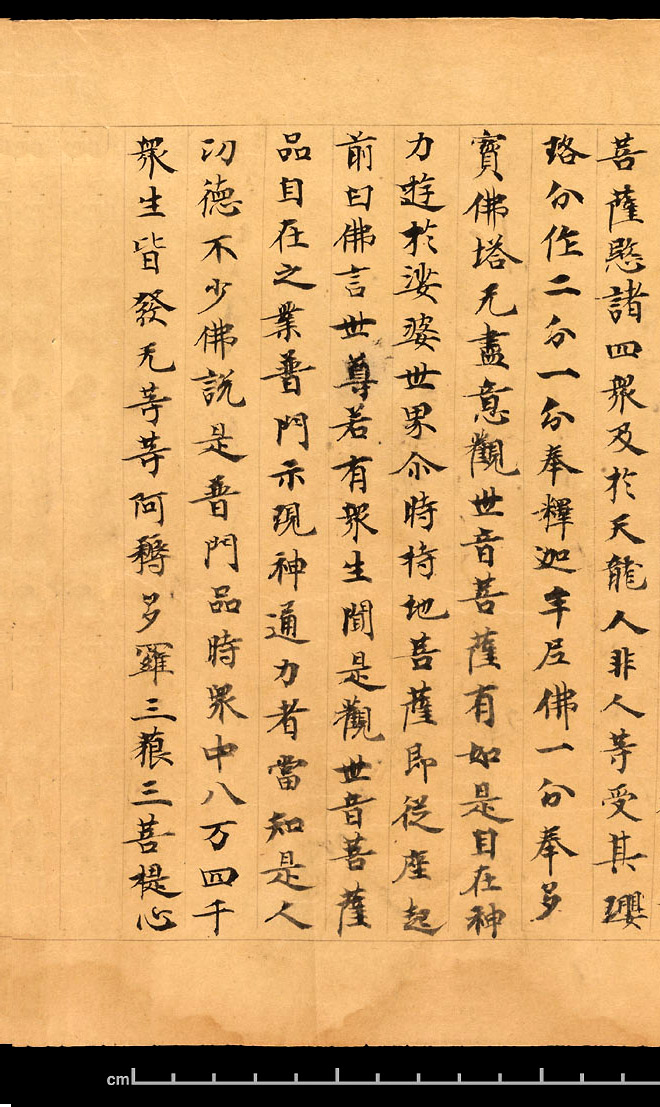 菩薩愍諸四衆及於天龍人非人等受其瓔
珞分作二分一分奉釋迦牟尼佛一分奉多
寶佛塔无盡意觀世音菩薩有如是自在神
力遊於娑婆世界尒時持地菩薩即從座起
前白佛言世尊若有衆生聞是觀世音菩薩
品自在之業普門示現神通力者當知是人
功德不少佛說是普門品時衆中八万四千
衆生皆發无等等阿耨多羅三藐三菩提心
cm